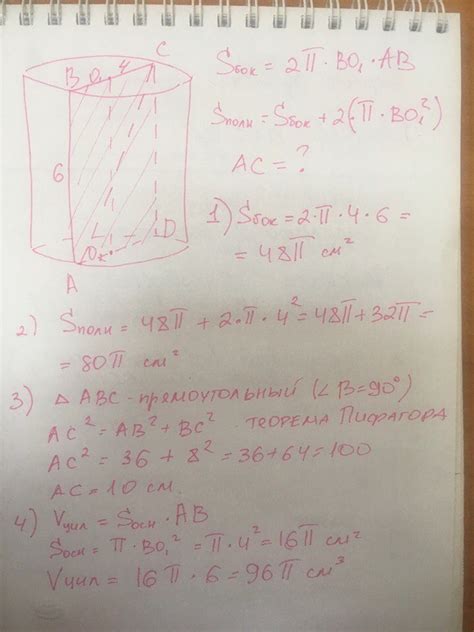 C
B O₁ 4
6
O D
A
Sбок = 2π · BO₁ · AB
Sполн = Sбок + 2(π · BO₁²)
AC = ?
1) Sбок = 2·π·4·6 =
= 48π см²
2) Sполн = 48π + 2·π·4² = 48π + 32π =
= 80π см²
3) △ ABC - прямоугольный (∠B=90°)
AC² = AB² + BC² теорема Пифагора
AC² = 36 + 8² = 36+64 = 100
AC = 10 см.
4) Vцил = Sосн · AB
Sосн = π · BO₁² = π·4² = 16π см²
Vцил = 16π · 6 = 96π см³